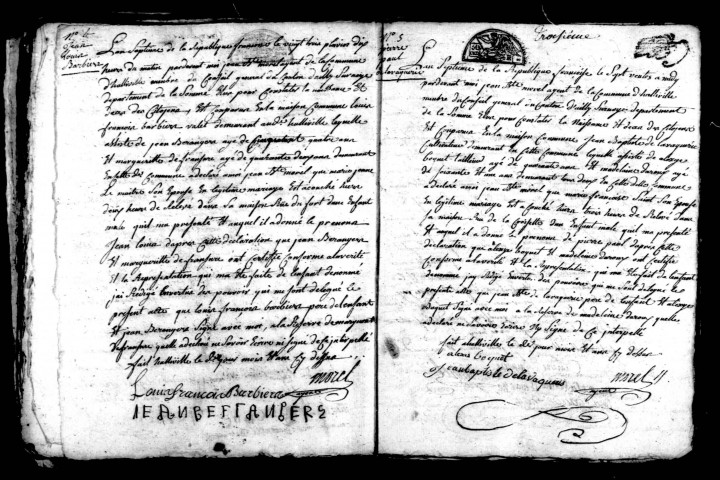 N° 4
Jean
Louis
Barbiere
L'an Septieme de la Republique françoise le vingt trois pluviose dix
heure du matin pardevant moi jean Bte morel agent de la commune
d'halivillé membre du Conseil general du Canton d'ailly
departement de la Somme Elue pour Constater la naissance Et
deces des Citoyens, Est comparue En la maison Commune louis
françois barbiere valet demeurant audit hallivillé lequelle
assisté de jean Berangere agé de Cinquante quatre ans
Et margueritte de franssure agé de quarante dux ans demeurant
Commune a declaré a moi jean Bte morel que marie jeanne
Le maitre son Epouse En legitime mariage Est accouché hiere
deux heure de relevé dans sa maison Rue du fort d'une Enfant
male quil ma presenté Et auquel il a donné le prenoms
Jean Louis d'apres Cette declaration que jean Berangere
Et margueritte de franssure ont Certifié Conforme a la verité
Et la Representation qui ma Eté faite de l'enfant denommé
j'ai Redigé En vertue des pouvoirs qui me sont delegué le
present acte que Louis françois barbiere pere de l'enfant
Et jean Berangere Signé avec moi, a la Reserve de margueritte
defransure quelle a declaré ne Savoir Ecrire ni signé de Ce interpellé
fait hallivillé le dit jour mois Et an Cy dessus
Louis francois Barbiere morel
agent
IEANBERRANGERS
N° 5
pierre
paul
delavaquerie
Troisieme
L'an Septieme de la Republique françoise le Sept ventos a midy
pardevant moi jean Bte morel agent de la Commune d'hallivillé
membre du Conseil general du Canton d'ailly departement
de la Somme Elue pour Constater la Naissance Et deces des Citoyens
Est Comparue En la maison Commune Jean Baptiste de lavaquerie
demeurant En Cette Commune lequelle assisté de
boquet tailleur agé de trente ans Et madeleine daroux agé
de Soixante Et un ans demeurant tous deux En Cette dite Commune
a declaré a moi jean Bte morel que marie françoise Son Epouse
En legitime mariage Est accouché hiere trois heure de Relevé dans
Sa maison Rue de d'un Enfant male quil ma presenté
Et auquel il a donné le prenoms de pierre paul d'apres Cette
declaration que boquet Et madeleine daroux ont Certifié
Conforme a la verité Et la Representation qui ma Eté fait de l'enfant
denommé jai Redigé En vertu des pouvoirs qui me sont delegué le
present acte que jean Bte de lavaquerie pere de l'enfant Et
boquet Signé avec moi a la Reserve de madeleine daroux quelle
a declaré ne Savoir Ecrire Ny Signé de Ce interpellé
fait hallivillé le dit jour mois Et an Cy dessus
boquet
jean baptiste delavaquerie morel
agent